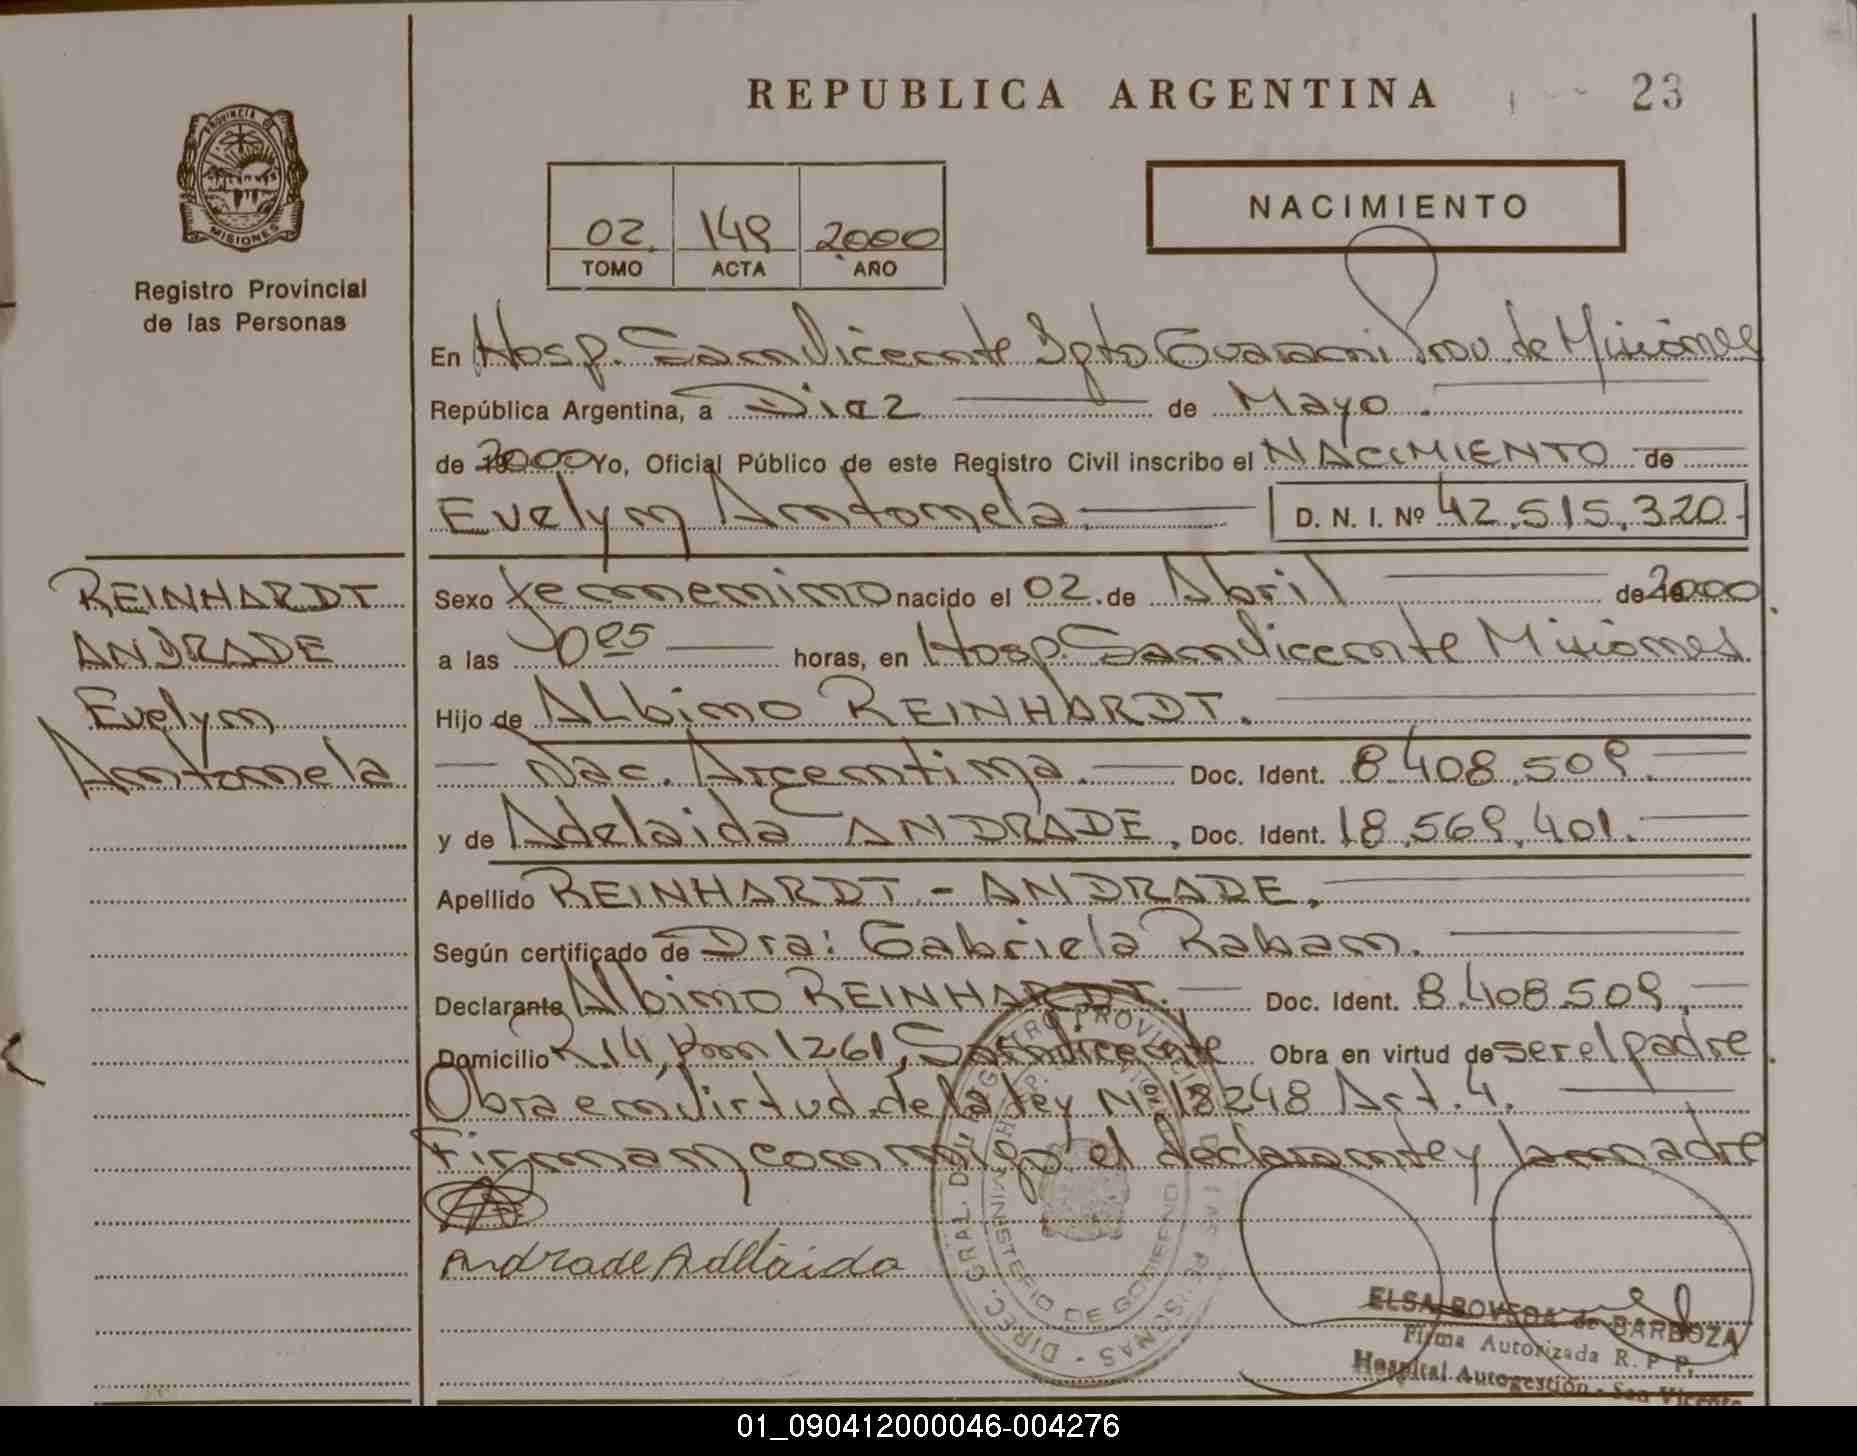 REPUBLICA ARGENTINA
23
PROVINCIA DE
MISIONES
Registro Provincial
de las Personas
02 149 2000
TOMO ACTA AÑO
NACIMIENTO
En Hosp. San Vicente Dpto Guarani Prov de Misiones
República Argentina, a Diez de Mayo
de 2000 Yo, Oficial Público de este Registro Civil inscribo el NACIMIENTO de
Evelyn Antonela D. N. I. Nº 42.515.320
REINHARDT
ANDRADE
Evelyn
Antonela
Sexo femenino nacido el 02 de Abril de 2000
a las horas, en Hosp. San Vicente Misiones.
Hijo de Albino REINHARDT.
Nac. Argentina. Doc. Ident. 8.408.509.
y de Adelaida ANDRADE, Doc. Ident. 18.569.401.
Apellido REINHARDT - ANDRADE.
Según certificado de Dra: Gabriela Raban.
Declarante Albino REINHARDT. Doc. Ident. 8.408.509.
Domicilio R.14, Km 1261, San Vicente Obra en virtud de ser el padre
Obra en virtud de la Ley Nº 18248 Art. 4.
Firman conmigo el declarante y la madre
Andrade Adelaida
DIREC. GRAL. DEL REGISTRO PROVINCIAL DE LAS PERSONAS
MINISTERIO DE GOBIERNO
ELSA BOVEDA de BARBOZA
Firma Autorizada R. P. P.
Hospital Autogestión - San Vicente
01_090412000046-004276